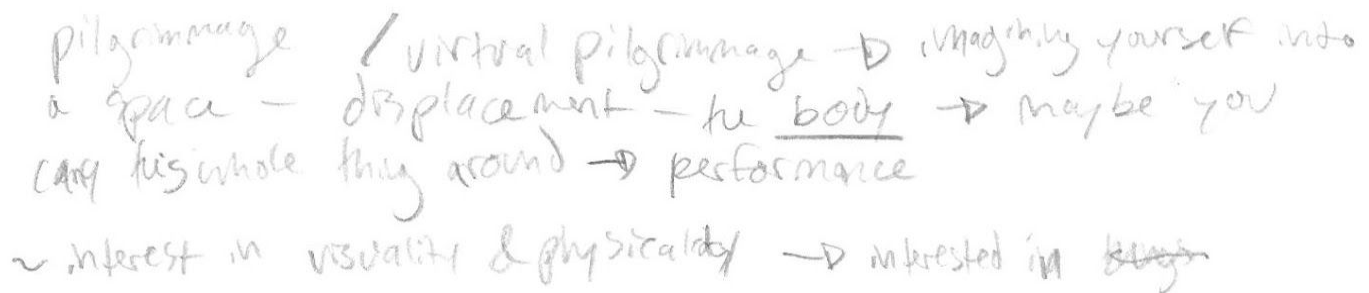 pilgrimmage / virtual pilgrimmage → imagining yourself into
a space – displacement – the body → maybe you
carry this whole thing around → performance
~ interest in visuality & physicality → interested in